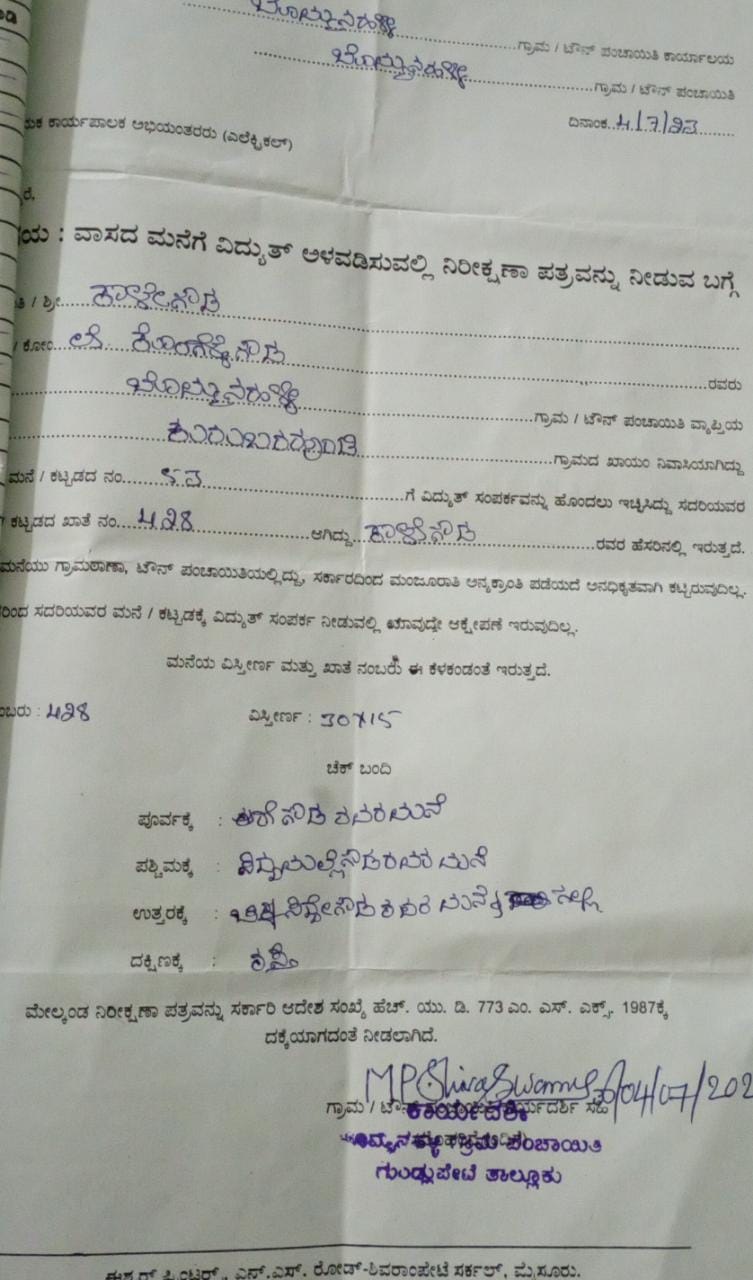 ಬೊಮ್ಮನಹಳ್ಳಿ ಗ್ರಾಮ / ಟೌನ್ ಪಂಚಾಯಿತಿ ಕಾರ್ಯಾಲಯ
ಬೊಮ್ಮನಹಳ್ಳಿ ಗ್ರಾಮ / ಟೌನ್ ಪಂಚಾಯಿತಿ
ದಿನಾಂಕ 4/7/23
ಯಕ ಕಾರ್ಯಪಾಲಕ ಅಭಿಯಂತರರು (ಎಲೆಕ್ಟ್ರಿಕಲ್)
ರೆ,
ಯ : ವಾಸದ ಮನೆಗೆ ವಿದ್ಯುತ್ ಅಳವಡಿಸುವಲ್ಲಿ ನಿರೀಕ್ಷಣಾ ಪತ್ರವನ್ನು ನೀಡುವ ಬಗ್ಗೆ
ತಿ / ಶ್ರೀ ಕಾಳೇಗೌಡ
/ ಕೋಂ ರವರು
ಬೊಮ್ಮನಹಳ್ಳಿ ಗ್ರಾಮ / ಟೌನ್ ಪಂಚಾಯಿತಿ ವ್ಯಾಪ್ತಿಯ
ಕುರುಬರಹುಂಡಿ ಗ್ರಾಮದ ಖಾಯಂ ನಿವಾಸಿಯಾಗಿದ್ದು
ಮನೆ / ಕಟ್ಟಡದ ನಂ. ಗೆ ವಿದ್ಯುತ್ ಸಂಪರ್ಕವನ್ನು ಹೊಂದಲು ಇಚ್ಚಿಸಿದ್ದು ಸದರಿಯವರ
ಕಟ್ಟಡದ ಖಾತೆ ನಂ. 428 ಆಗಿದ್ದು ಕಾಳೇಗೌಡ ರವರ ಹೆಸರಿನಲ್ಲಿ ಇರುತ್ತದೆ.
ಮನೆಯು ಗ್ರಾಮಠಾಣಾ, ಟೌನ್ ಪಂಚಾಯಿತಿಯಲ್ಲಿದ್ದು, ಸರ್ಕಾರದಿಂದ ಮಂಜೂರಾತಿ ಅನ್ಯಕ್ರಾಂತಿ ಪಡೆಯದೆ ಅನಧಿಕೃತವಾಗಿ ಕಟ್ಟಿರುವುದಿಲ್ಲ.
ರಿಂದ ಸದರಿಯವರ ಮನೆ / ಕಟ್ಟಡಕ್ಕೆ ವಿದ್ಯುತ್ ಸಂಪರ್ಕ ನೀಡುವಲ್ಲಿ ಯಾವುದೇ ಆಕ್ಷೇಪಣೆ ಇರುವುದಿಲ್ಲ.
ಮನೆಯ ವಿಸ್ತೀರ್ಣ ಮತ್ತು ಖಾತೆ ನಂಬರು ಈ ಕೆಳಕಂಡಂತೆ ಇರುತ್ತದೆ.
ಂಬರು : 428 ವಿಸ್ತೀರ್ಣ : 30X15
ಚೆಕ್ ಬಂದಿ
ಪೂರ್ವಕ್ಕೆ : ರವರ ಮನೆ
ಪಶ್ಚಿಮಕ್ಕೆ : ರವರ ಮನೆ
ಉತ್ತರಕ್ಕೆ : ಸಿದ್ದೇಗೌಡ ರವರ ಮನೆ
ದಕ್ಷಿಣಕ್ಕೆ : ರಸ್ತೆ
ಮೇಲ್ಕಂಡ ನಿರೀಕ್ಷಣಾ ಪತ್ರವನ್ನು ಸರ್ಕಾರಿ ಆದೇಶ ಸಂಖ್ಯೆ ಹೆಚ್. ಯು. ಡಿ. 773 ಎಂ. ಎಸ್. ಎಕ್ಸ್. 1987ಕ್ಕೆ
ದಕ್ಕೆಯಾಗದಂತೆ ನೀಡಲಾಗಿದೆ.
MP Shiva Swamy 04/07/202
ಗ್ರಾಮ / ಟೌನ್ ಸಹಿ
ಕಾರ್ಯದರ್ಶಿ
ಗ್ರಾಮ ಪಂಚಾಯಿತಿ
ಗುಂಡ್ಲುಪೇಟೆ ತಾಲ್ಲೂಕು
ಈಶ್ವರ್ ಪ್ರಿಂಟರ್ಸ್, ಎನ್.ಎಸ್. ರೋಡ್-ಶಿವರಾಂಪೇಟೆ ಸರ್ಕಲ್, ಮೈಸೂರು.